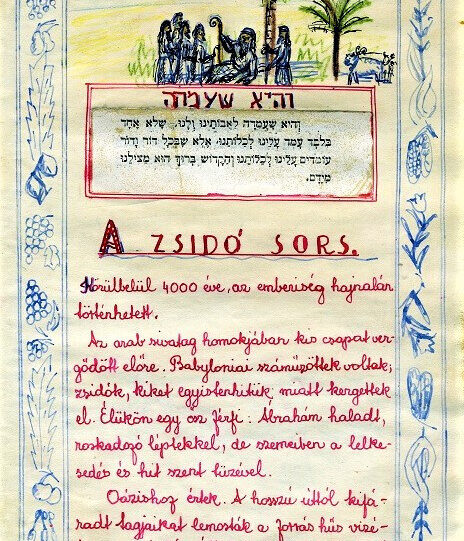 והיא שעמדה
וְהִיא שֶׁעָמְדָה לַאֲבוֹתֵינוּ וְלָנוּ, שֶׁלֹּא אֶחָד
בִּלְבָד עָמַד עָלֵינוּ לְכַלּוֹתֵנוּ, אֶלָּא שֶׁבְּכָל דּוֹר וָדוֹר
עוֹמְדִים עָלֵינוּ לְכַלּוֹתֵנוּ וְהַקָּדוֹשׁ בָּרוּךְ הוּא מַצִּילֵנוּ
מִיָּדָם.
A ZSIDÓ SORS.
Körülbelül 4000 éve, az emberiség hajnalán
történhetett.
Az arab sivatag homokjában kis csapat ver-
gődött előre. Babyloniai száműzöttek voltak,
zsidók, kiket egyistenhitük miatt kergettek
el. Élükön egy ősz férfi: Ábrahám haladt,
roskadozó léptekkel, de szemeiben a lelke-
sedés és hit szent tüzével.
Oázishoz értek. A hosszú úttól kifá-
radt tagjaikat lemosták a forrás hűs vizé-